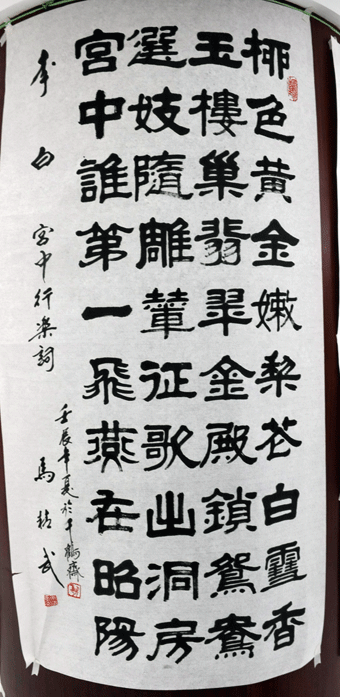 柳色黄金嫩梨花白雪香
玉樓巢翡翠金殿鎖鴛鴦
選妓隨雕輦征歌出洞房
宮中誰第一飛燕在昭陽
李白 宫中行樂詞
壬辰年夏於千齋
馬武